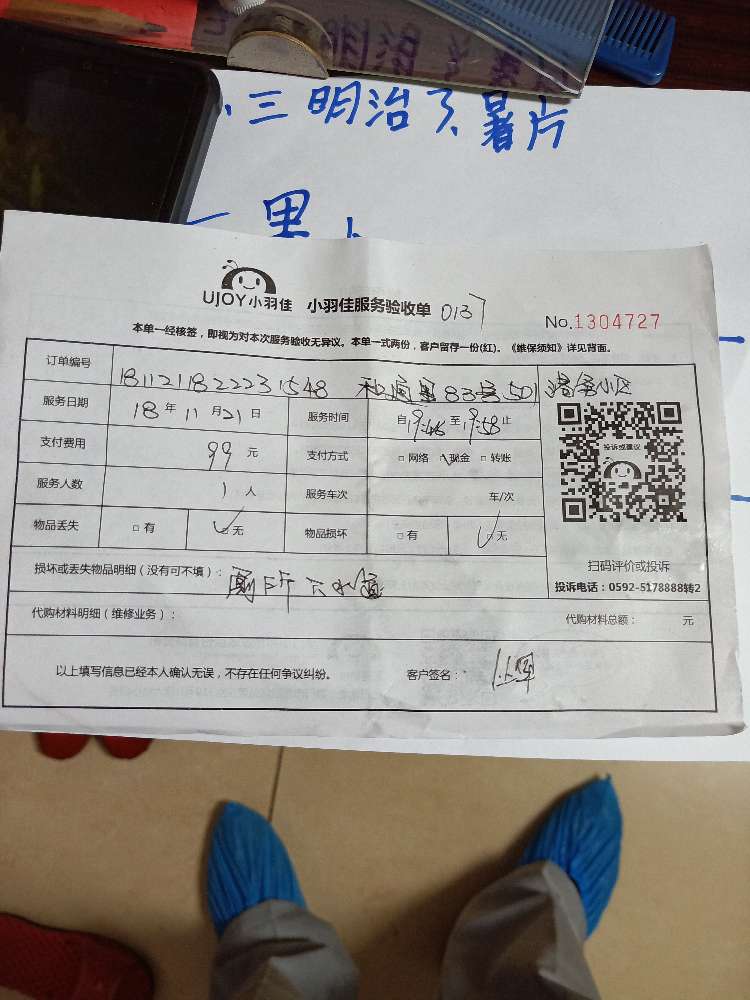 三明治了薯片
UJOY小羽佳 小羽佳服务验收单 0137
No.1304727
本单一经核签，即视为对本次服务验收无异议。本单一式两份，客户留存一份(红)。《维保须知》详见背面。
订单编号 1811211822231548 83号501 小区
服务日期 18年11月21日 服务时间 自19:46至19:58止
支付费用 99元 支付方式 □网络 □现金 □转账
投诉或建议
服务人数 1人 服务车次 车/次
物品丢失 □有 □无 物品损坏 □有 □无
扫码评价或投诉
投诉电话：0592-5178888转2
损坏或丢失物品明细（没有可不填）：厕所下水道
代购材料明细（维修业务）： 代购材料总额： 元
以上填写信息已经本人确认无误，不存在任何争议纠纷。 客户签名：